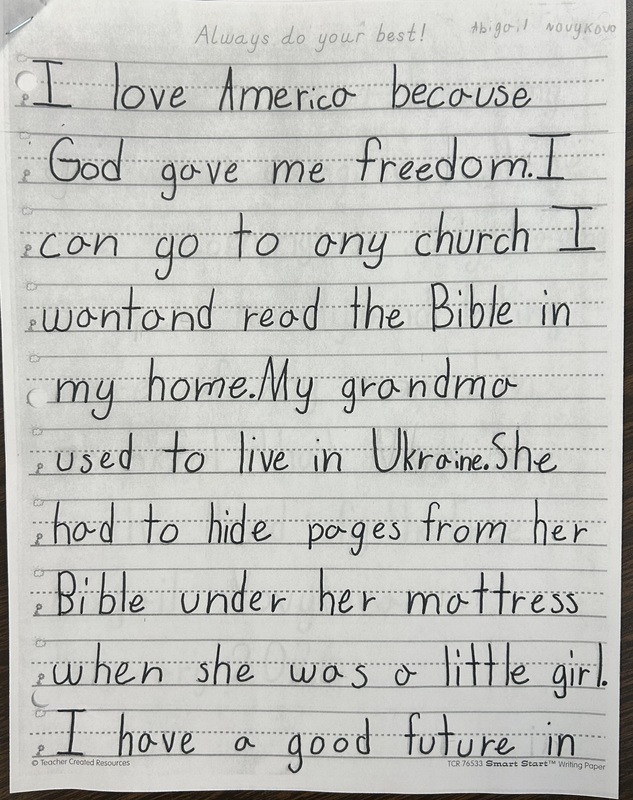 Always do your best! Abigail Novykovo
I love America because
God gave me freedom.I
can go to any church I
wantand read the Bible in
my home.My grandma
used to live in Ukraine.She
had to hide pages from her
Bible under her mattress
when she was a little girl.
I have a good future in
© Teacher Created Resources TCR 76533 Smart Start™ Writing Paper